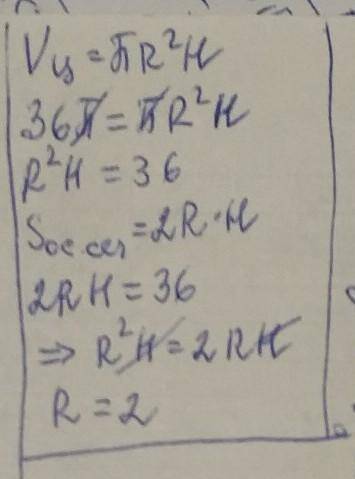 Vц = πR²H
36π = πR²H
R²H = 36
Sос.сеч = 2R·H
2RH = 36
⇒ R²H = 2RH
R = 2